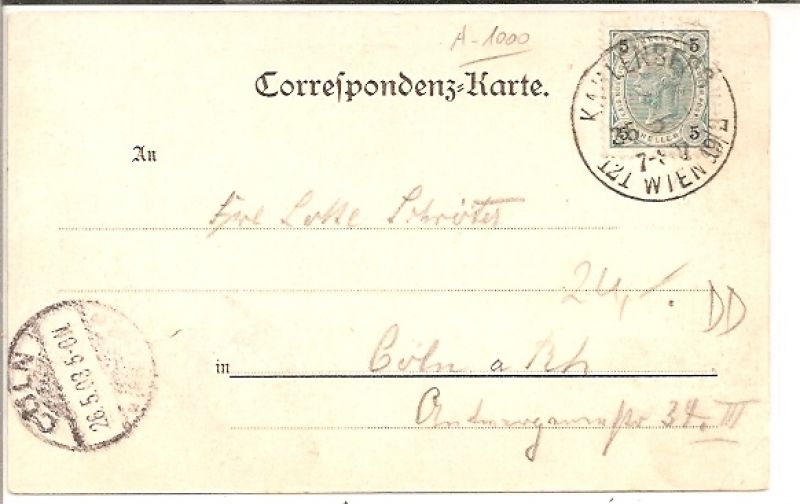 A-1000
Correspondenz-Karte.
5 5
5 HELLER 5
KAHLENBERG
7-
121 WIEN 19/1
An
Frl Lotte Schröter
24,-.
DD
in Cöln a Rh
Antwerpenerstr 34. III
CÖLN
26.5.03 5-6N